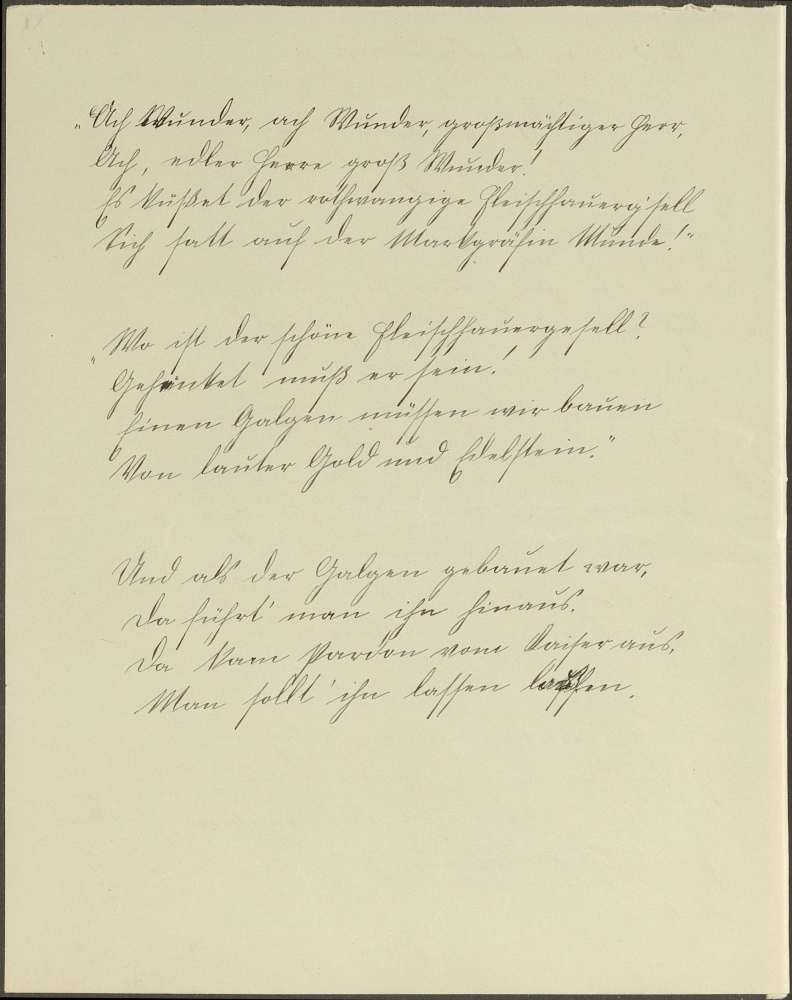 „Ach Wunder, ach Wunder, großmächtiger Herr,
Ach, edler Herre groß Wunder!
Es küßet der rothwangige Fleischhauerg'sell
Sich satt auf der Markgräfin Munde!"
„Wo ist der schöne Fleischhauergesell?
Gehenket muß er sein!
Einen Galgen müssen wir bauen
Von lauter Gold und Edelstein."
Und als der Galgen gebauet war,
Da führt' man ihn hinaus.
Da kam Pardon vom Kaiser aus,
Man sollt' ihn lassen laufen.